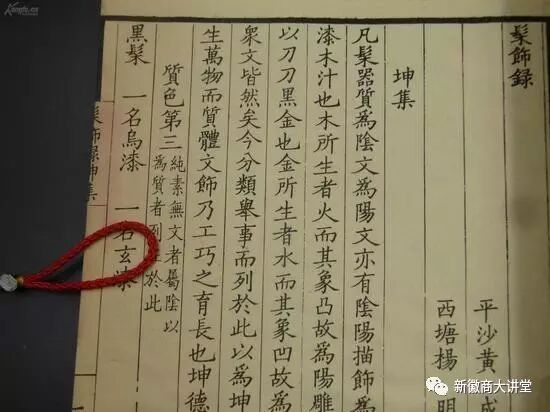 髹飾録
平沙黃成
西塘楊明
坤集
凡髹器質為陰文為陽文亦有陰陽描飾為
漆木汁也木所生者火而其象凸故為陽雕
以刀刀黑金也金所生者水而其象凹故為
衆文皆然矣今分類舉事而列於此以為坤
生萬物而質體文飾乃工巧之育長也坤德
質色第三 純素無文者屬陰以
為質者列於此
黑髹 一名烏漆 一名玄漆
髹飾録坤集
新徽商大讲堂